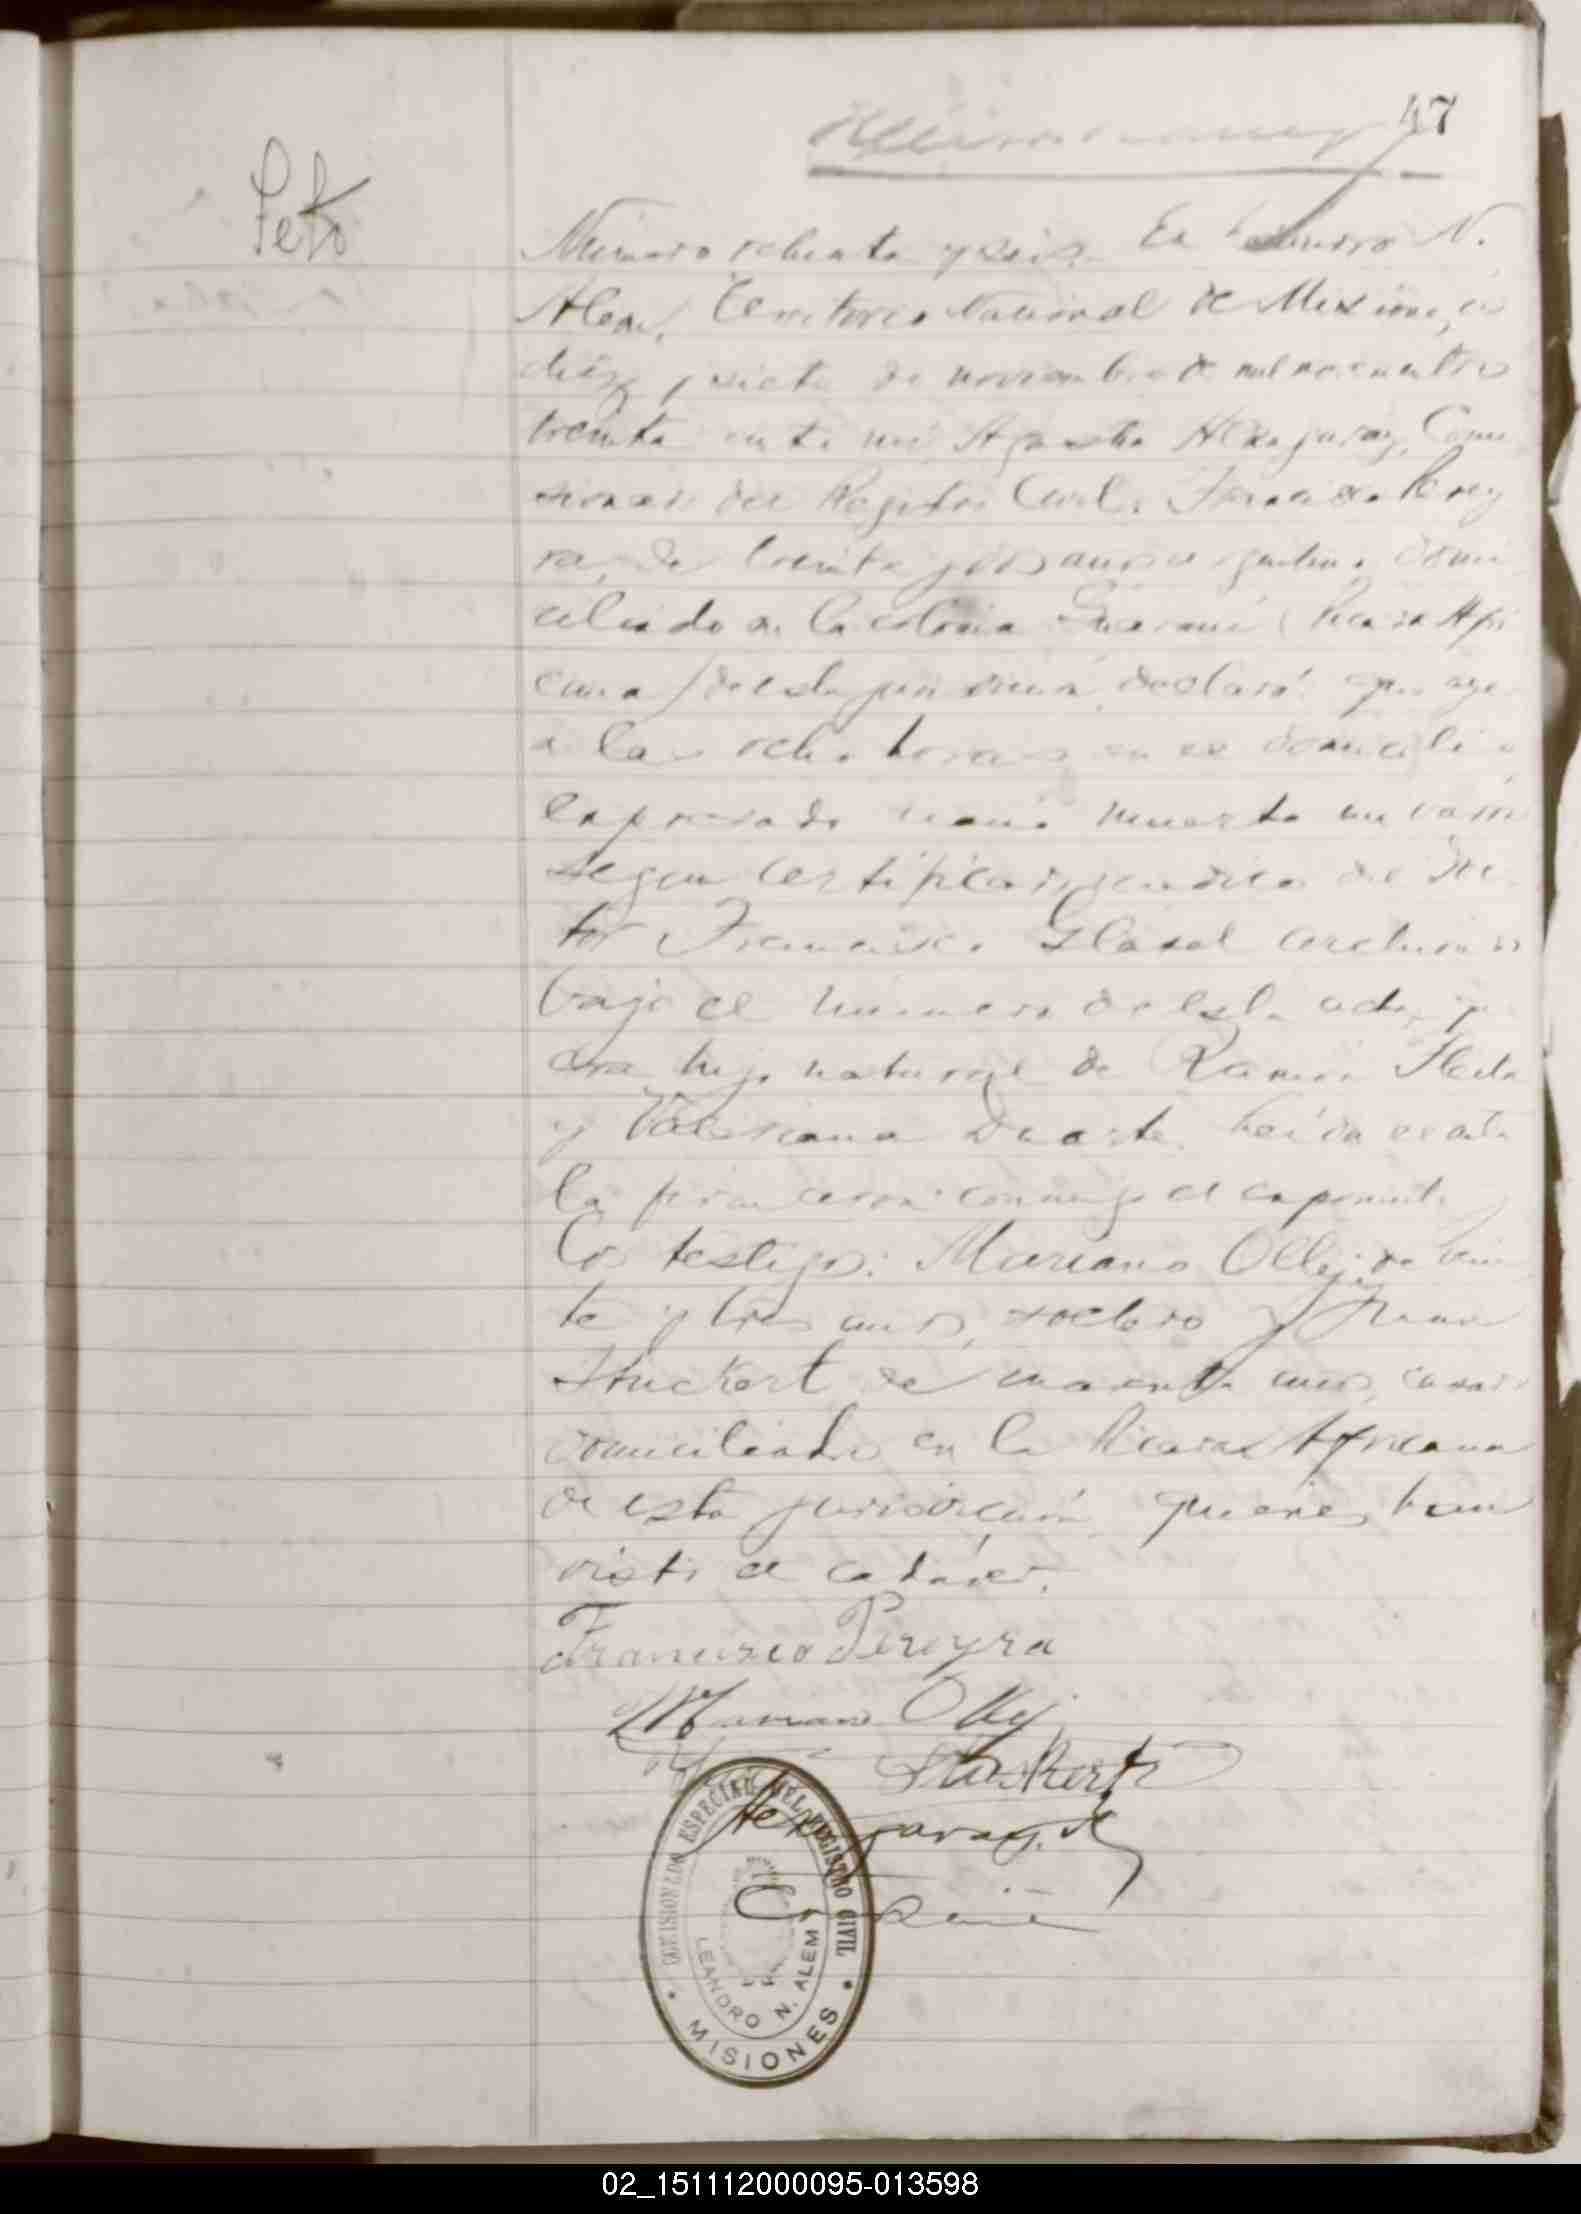 47
Feto
Número ochenta y seis. En Leandro N.
Alem, Territorio Nacional de Misiones, a
diez y siete de noviembre de mil novecientos
treinta ante mi Agustin Comi
sionado del Registro Civil, Francisco Perey
ra, de treinta y dos anos argentino, domi
ciliado en la colonia Guaraní (Picada Afri
cana) de esta jurisdicción, declaró: que aye
a las ocho horas en el domicilio
expresado nació muerto un varón
segun certificado medico del Doc
tor Francisco Glasel archivado
bajo el número de esta acta, que
era hijo natural de Ramón
y Valeriana Duarte. Leída el acta
la firmaron conmigo el exponente y
los testigos: Mariano Ollej, de vein
te y tres anos, soltero y Juan
Stuckert de cuarenta anos, casado
domiciliados en la Picada Africana
de esta jurisdicción quienes han
visto el cadáver.
Francisco Pereyra
Mariano Ollej
Stuckert
COMISIONADO ESPECIAL DEL REGISTRO CIVIL
LEANDRO N. ALEM
MISIONES
02_151112000095-013598